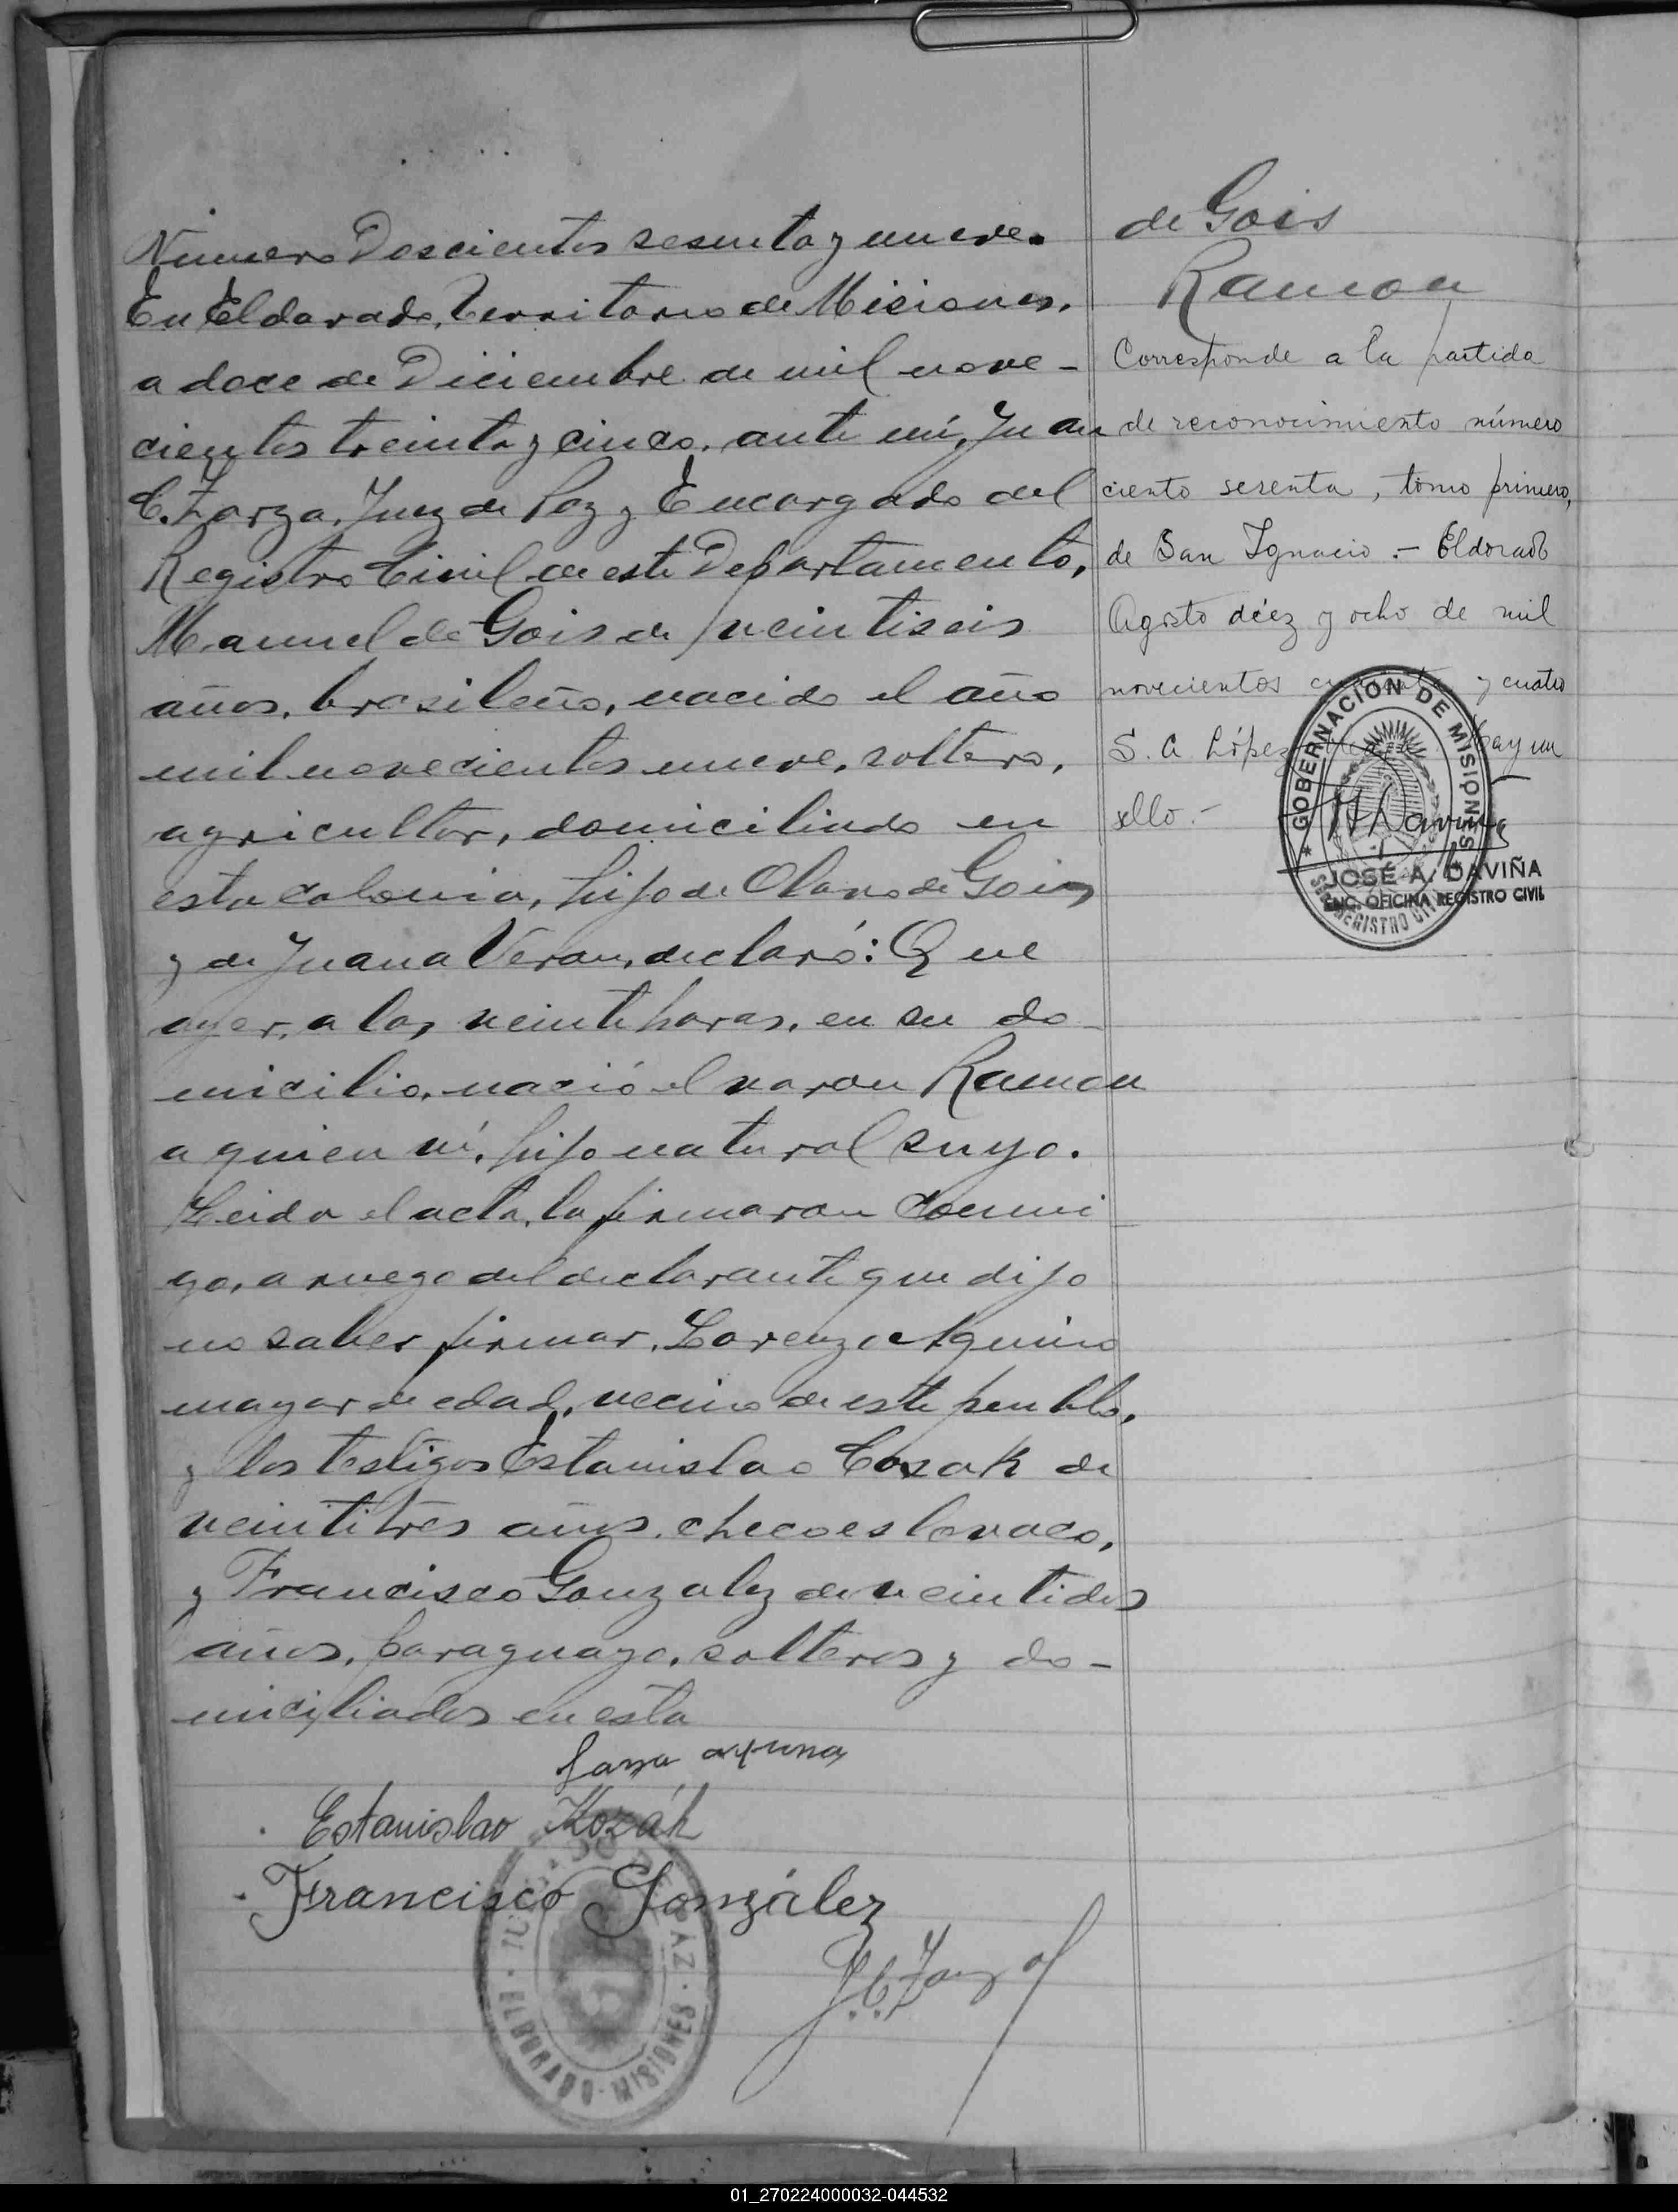 Número Doscientos sesenta y nueve.
En Eldorado, Territorio de Misiones,
a doce de Diciembre de mil nove-
cientos treinta y cinco, ante mí, Juan
C. Zarza, Juez de Paz y Encargado del
Registro Civil de este Departamento,
Manuel de Gois de veintiseis
años, brasileño, nacido el año
mil novecientos nueve, soltero,
agricultor, domiciliado en
esta colonia, hijo de Olavo de Gois
y de Juana Veran, declaró: Que
ayer, a las veinte horas, en su do-
micilio, nació el varon Ramon
a quien ví, hijo natural suyo.
Leida el acta, la firmaron conmi
go, a ruego del declarante que dijo
no saber firmar, Lorenzo Aquino
mayor de edad, vecino de este pueblo,
y los testigos Estanislao Cozak de
veintitres años, checoeslovaco,
y Francisco Gonzalez de veintidos
años, paraguayo, solteros y do-
miciliados en esta
Estanislao Kozák
Francisco González
J. C. Zarza
ELDORADO - MISIONES
de Gois
Ramon
Corresponde a la partida
de reconocimiento número
ciento sesenta, tomo primero,
de San Ignacio.- Eldorado
Agosto diez y ocho de mil
novecientos cuarenta y cuatro
S. A. López Hay un
sello.-
GOBERNACION DE MISIONES
JOSÉ A. DAVIÑA
ENC. OFICINA REGISTRO CIVIL
01_270224000032-044532